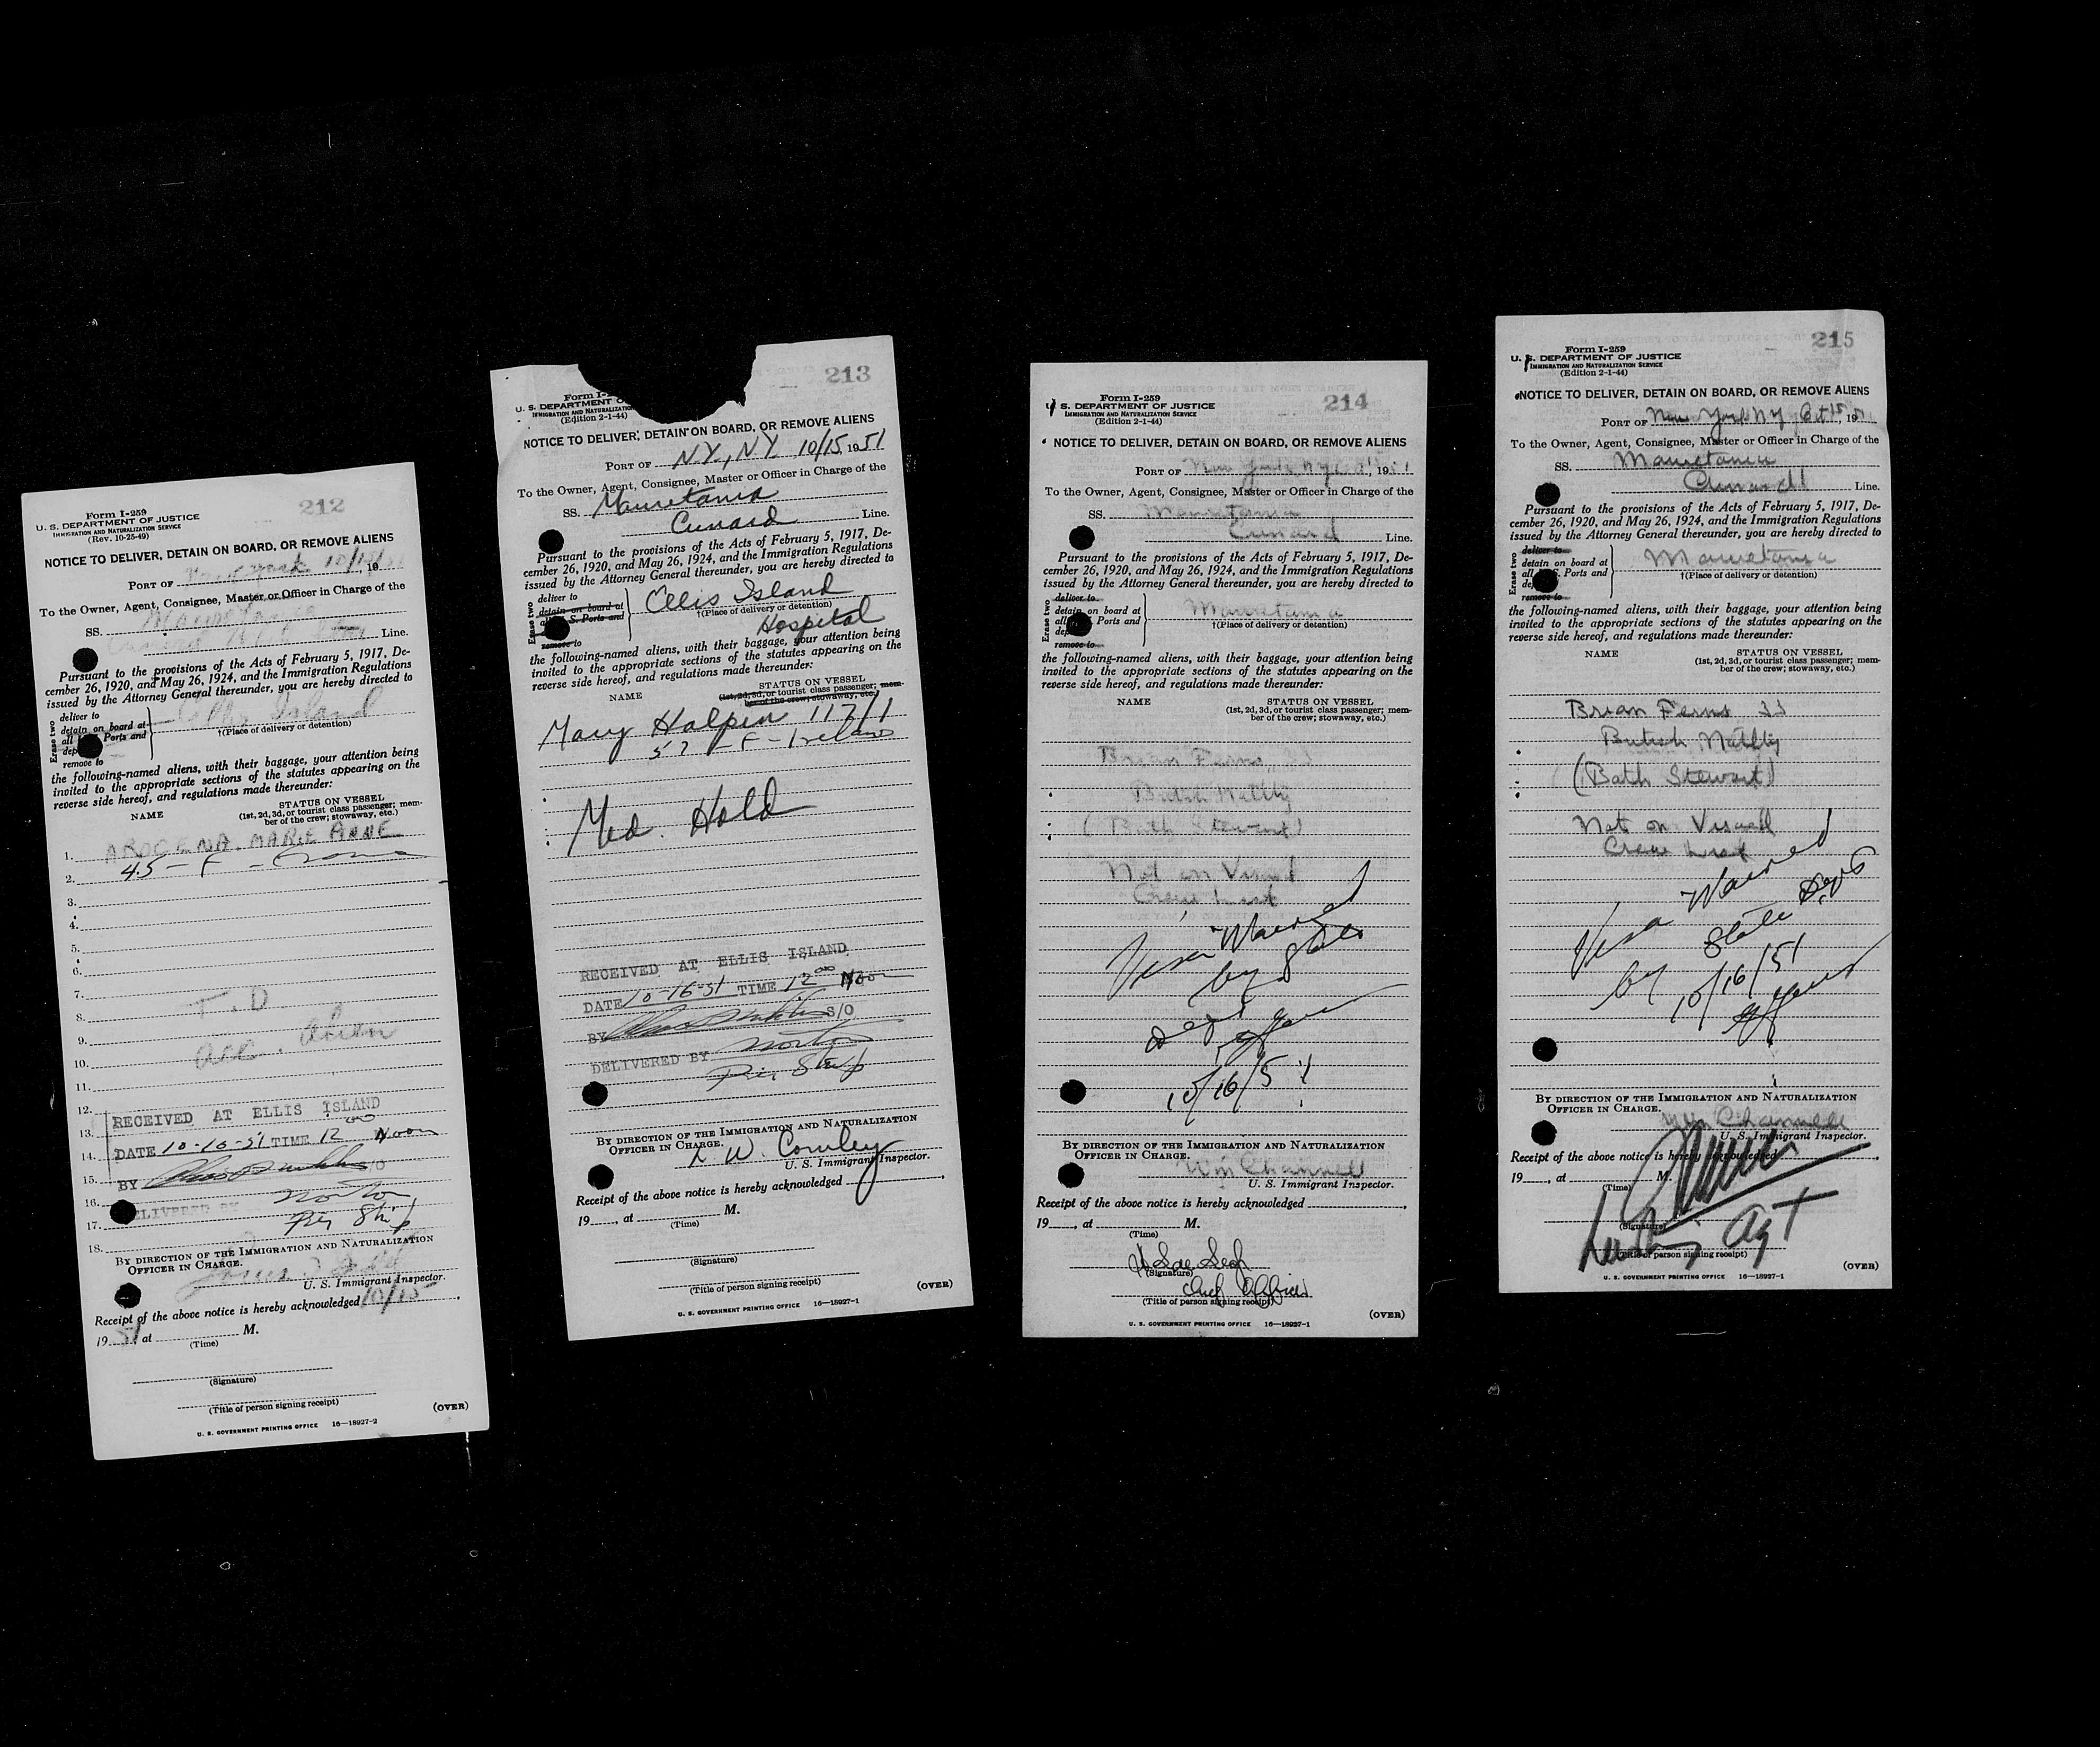 212
Form I-259
U. S. DEPARTMENT OF JUSTICE
IMMIGRATION AND NATURALIZATION SERVICE
(Rev. 10-25-49)
NOTICE TO DELIVER, DETAIN ON BOARD, OR REMOVE ALIENS
PORT OF New York 10/15, 19
To the Owner, Agent, Consignee, Master or Officer in Charge of the
SS. Mauretania
Line.
Pursuant to the provisions of the Acts of February 5, 1917, De-
cember 26, 1920, and May 26, 1924, and the Immigration Regulations
issued by the Attorney General thereunder, you are hereby directed to
Erase two
deliver to
detain on board at
all Ports and
dep
remove to
Ellis Island
†(Place of delivery or detention)
the following-named aliens, with their baggage, your attention being
invited to the appropriate sections of the statutes appearing on the
reverse side hereof, and regulations made thereunder:
NAME
STATUS ON VESSEL
(1st, 2d, 3d, or tourist class passenger; mem-
ber of the crew; stowaway, etc.)
1. AROCENA. MARIE ANNE
2. 45 - F -
3.
4.
5.
6.
7.
8. T. D
9.
10. acc. alien
11.
12.
RECEIVED AT ELLIS ISLAND
13.
14. DATE 10-16-51 TIME 12 00 Noon
15. BY S/O
16. DELIVERED BY Norton
17. Pier Ship
18.
BY DIRECTION OF THE IMMIGRATION AND NATURALIZATION
OFFICER IN CHARGE.
U. S. Immigrant Inspector.
Receipt of the above notice is hereby acknowledged 10/15,
19 51 at M.
(Time)
(Signature)
(Title of person signing receipt)
(OVER)
U. S. GOVERNMENT PRINTING OFFICE 16—18927-2
213
Form I-
U. S. DEPARTMENT O
IMMIGRATION AND NATURALIZATION
(Edition 2-1-44)
NOTICE TO DELIVER, DETAIN ON BOARD, OR REMOVE ALIENS
PORT OF N.Y., N.Y. 10/15, 1951
To the Owner, Agent, Consignee, Master or Officer in Charge of the
SS. Mauretania
Cunard Line.
Pursuant to the provisions of the Acts of February 5, 1917, De-
cember 26, 1920, and May 26, 1924, and the Immigration Regulations
issued by the Attorney General thereunder, you are hereby directed to
Erase two
deliver to
detain on board at
all S. Ports and
remove to
Ellis Island
†(Place of delivery or detention)
Hospital
the following-named aliens, with their baggage, your attention being
invited to the appropriate sections of the statutes appearing on the
reverse side hereof, and regulations made thereunder:
NAME
STATUS ON VESSEL
(1st, 2d, 3d, or tourist class passenger; mem-
ber of the crew; stowaway, etc.)
Mary Halpin 117/1
57 - F - Ireland
Med. Hold
RECEIVED AT ELLIS ISLAND
DATE 10-16-51 TIME 12 00 Noon
BY S/O
DELIVERED BY Norton
Pier Ship
BY DIRECTION OF THE IMMIGRATION AND NATURALIZATION
OFFICER IN CHARGE.
W. Cowley
U. S. Immigrant Inspector.
Receipt of the above notice is hereby acknowledged
19 , at M.
(Time)
(Signature)
(Title of person signing receipt)
(OVER)
U. S. GOVERNMENT PRINTING OFFICE 16—18927-1
214
Form I-259
U. S. DEPARTMENT OF JUSTICE
IMMIGRATION AND NATURALIZATION SERVICE
(Edition 2-1-44)
NOTICE TO DELIVER, DETAIN ON BOARD, OR REMOVE ALIENS
PORT OF New York NY 19 51
To the Owner, Agent, Consignee, Master or Officer in Charge of the
SS. Mauretania
Cunard Line.
Pursuant to the provisions of the Acts of February 5, 1917, De-
cember 26, 1920, and May 26, 1924, and the Immigration Regulations
issued by the Attorney General thereunder, you are hereby directed to
Erase two
deliver to
detain on board at
all Ports and
dep
remove to
Mauretania
†(Place of delivery or detention)
the following-named aliens, with their baggage, your attention being
invited to the appropriate sections of the statutes appearing on the
reverse side hereof, and regulations made thereunder:
NAME
STATUS ON VESSEL
(1st, 2d, 3d, or tourist class passenger; mem-
ber of the crew; stowaway, etc.)
Brian Ferns,
British Natlty
(Bath Stewart)
Not on Vessel
Crew List
Visa Waived
by State
Dept
10/16/51
BY DIRECTION OF THE IMMIGRATION AND NATURALIZATION
OFFICER IN CHARGE.
Wm Channell
U. S. Immigrant Inspector.
Receipt of the above notice is hereby acknowledged
19 , at M.
(Time)
(Signature)
Chief Officer
(Title of person signing receipt)
(OVER)
U. S. GOVERNMENT PRINTING OFFICE 16—18927-1
215
Form I-259
U. S. DEPARTMENT OF JUSTICE
IMMIGRATION AND NATURALIZATION SERVICE
(Edition 2-1-44)
NOTICE TO DELIVER, DETAIN ON BOARD, OR REMOVE ALIENS
PORT OF New York NY Oct 15, 19
To the Owner, Agent, Consignee, Master or Officer in Charge of the
SS. Mauretania
Cunard Line.
Pursuant to the provisions of the Acts of February 5, 1917, De-
cember 26, 1920, and May 26, 1924, and the Immigration Regulations
issued by the Attorney General thereunder, you are hereby directed to
Erase two
deliver to
detain on board at
all S. Ports and
de
remove to
Mauretania
†(Place of delivery or detention)
the following-named aliens, with their baggage, your attention being
invited to the appropriate sections of the statutes appearing on the
reverse side hereof, and regulations made thereunder:
NAME
STATUS ON VESSEL
(1st, 2d, 3d, or tourist class passenger; mem-
ber of the crew; stowaway, etc.)
Brian Ferns
British Natlty
(Bath Stewart)
Not on Vessel
Crew List
Visa Waived
by State Dept
10/16/51
BY DIRECTION OF THE IMMIGRATION AND NATURALIZATION
OFFICER IN CHARGE.
Wm Channell
U. S. Immigrant Inspector.
Receipt of the above notice is hereby acknowledged
19 , at M.
(Time)
(Signature)
Agt
(Title of person signing receipt)
(OVER)
U. S. GOVERNMENT PRINTING OFFICE 16—18927-1